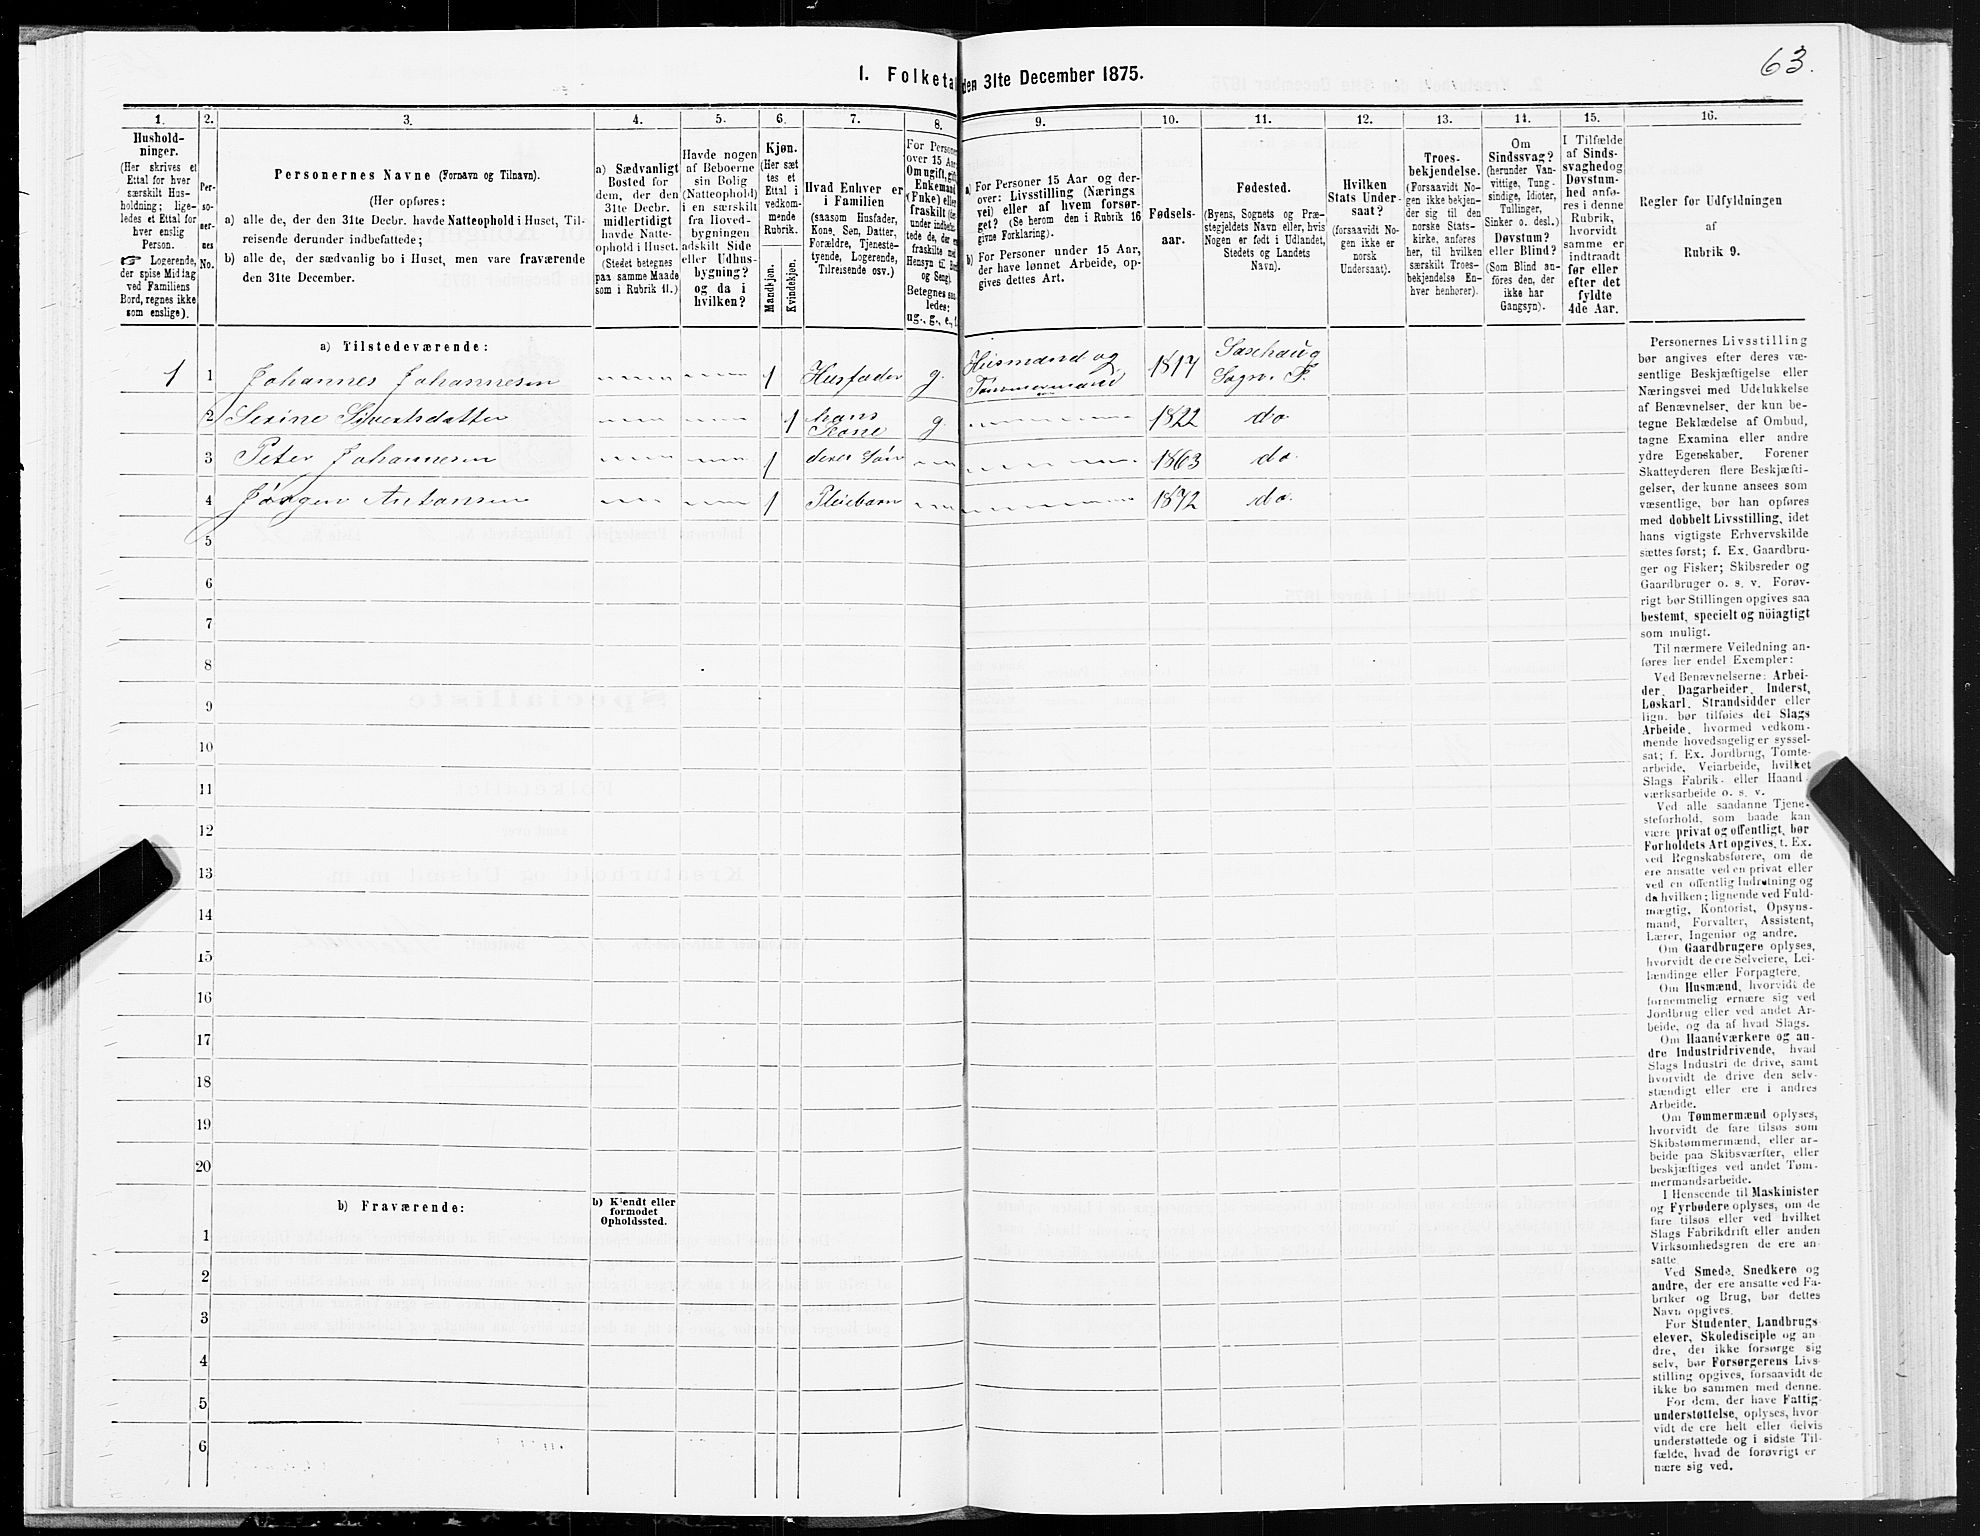 63.
I. Folketal den 31te December 1875.
1. 2. 3. 4. 5. 6. 7. 8. 9. 10. 11. 12. 13. 14. 15. 16.
Hushold-
ninger.
(Her skrives et
Ettal for hver
særskilt Hus-
holdning; lige-
ledes et Ettal for
hver enslig
Person.
☞ Logerende,
der spise Middag
ved Familiens
Bord, regnes ikke
som enslige).
Per-
so-
ner-
nes
No.
Personernes Navne (Fornavn og Tilnavn).
(Her opføres:
a) alle de, der den 31te Decbr. havde Natteophold i Huset, Til-
reisende derunder indbefattede;
b) alle de, der sædvanlig bo i Huset, men vare fraværende
den 31te December.
a) Sædvanligt
Bosted for
dem, der den
31te Decbr.
midlertidigt
havde Natte-
ophold i Huset.
(Stedet betegnes
paa samme Maade
som i Rubrik 11.)
Havde nogen
af Beboerne
sin Bolig
(Natteophold)
i en særskilt
fra Hoved-
bygningen
adskilt Side
eller Udhus-
bygning?
og da i
hvilken?
Kjøn.
(Her sæt
tes et
Ettal i
vedkom-
mende
Rubrik.
Mandkjøn.
Kvindekjøn.
Hvad Enhver er
i Familien
(saasom Husfader,
Kone, Søn, Datter,
Forældre, Tjeneste-
tyende, Logerende,
Tilreisende osv.)
For Personer
over 15 Aar
Om ugift, gift,
Enkemand
(Enke) eller
fraskilt
Betegnes saa-
ledes:
ug., g., e., f.
a) For Personer 15 Aar og der-
over: Livsstilling (Nærings
vei) eller af hvem forsør-
get? (Se herom den i Rubrik 16
givne Forklaring).
b) For Personer under 15 Aar,
der have lønnet Arbeide, op-
gives dettes Art.
Fødsels-
aar.
Fødested.
(Byens, Sognets og Præ-
stegjeldets Navn eller, hvis
Nogen er født i Udlandet,
Stedets og Landets
Navn).
Hvilken
Stats Under-
saat?
(forsaavidt No-
gen ikke er
norsk
Undersaat).
Troes-
bekjendelse.
(Forsaavidt No-
gen ikke bekjen-
der sig til den
norske Stats-
kirke, anføres
her, til hvilken
særskilt Troes-
bekjendelse En-
hver henhører).
Om
Sindssvag?
(herunder Van-
vittige, Tung-
sindige, Idioter,
Tullinger,
Sinker o. desl.)
Døvstum?
eller Blind?
(Som Blind an-
føres den, der
ikke har
Gangsyn).
I Tilfælde
af Sinds-
svaghed og
Døvstum-
hed anfø-
res i denne
Rubrik,
hvorvidt
samme er
indtraadt
før eller
efter det
fyldte
4de Aar.
Regler for Udfyldningen
af
Rubrik 9.
a) Tilstedeværende:
1 1 Johannes Johannesen 1 Husfader g. Husmand og Tømmermand 1817 Sogn. P.
2 Serine Sivertsdatter 1 hans Kone g. 1822 do
3 Peter Johannesen 1 deres Søn 1863 do.
4 Jørgen Antonsen 1 Pleiebarn 1872 do.
5
6
7
8
9
10
11
12
13
14
15
16
17
18
19
20
b) Fraværende:
b) Kjendt eller
formodet
Opholdssted.
1
2
3
4
5
6
Personernes Livsstilling
bør angives efter deres væ-
sentlige Beskjæftigelse eller
Næringsvei med Udelukkelse
af Benævnelser, der kun be-
tegne Beklædelse af Ombud,
tagne Examina eller andre
ydre Egenskaber. Forener
Skatteyderen flere Beskjæfti-
gelser, der kunne ansees som
væsentlige, bør han opføres
med dobbelt Livsstilling, idet
hans vigtigste Erhvervskilde
sættes først; f. Ex. Gaardbru-
ger og Fisker; Skibsreder og
Gaardbruger o. s. v. Forøv-
rigt bør Stillingen opgives saa
bestemt, specielt og nöiagtigt
som muligt.
Til nærmere Veiledning an-
føres her endel Exempler:
Ved Benævnelserne: Arbei-
der, Dagarbeider, Inderst,
Løskarl, Strandsidder eller
lign. bør tilføies det Slags
Arbeide, hvormed vedkom-
mende hovedsagelig er syssel-
sat; f. Ex. Jordbrug, Tømte-
arbeide, Veiarbeide, hvilket
Slags Fabrik- eller Haand-
værksarbeide o. s. v.
Ved alle saadanne Tjene-
steforhold, som baade kan
være privat og offentligt, bør
Forholdets Art opgives, t. Ex.
ved Regnskabsførere, om de
ere ansatte ved en privat eller
ved en offentlig Indretning og
da hvilken; lignende ved Fuld-
mægtig, Kontorist, Opsyns-
mand, Forvalter, Assistent,
Lærer, Ingeniør og andre.
Om Gaardbrugere oplyses,
hvorvidt de ere Selveiere, Lei-
lændinge eller Forpagtere.
Om Husmænd, hvorvidt de
fornemmelig ernære sig ved
Jordbrug eller ved andet Ar-
beide, og da af hvad Slags.
Om Haandværkere og an-
dre Industridrivende, hvad
Slags Industri de drive, samt
hvorvidt de drive den selv-
stændigt eller ere i andres
Arbeide.
Om Tømmermænd oplyses,
hvorvidt de fare tilsøs som
Skibstømmermænd, eller ar-
beide paa Skibsværfter, eller
beskjæftiges ved andet Tøm-
mermandsarbeide.
I Henseende til Maskinister
og Fyrbødere oplyses, om de
fare tilsøs eller ved hvilket
Slags Fabrikdrift eller anden
Virksomhedsgren de ere an-
satte.
Ved Smede, Snedkere og
andre, der ere ansatte ved Fa-
briker og Brug, bør dettes
Navn opgives.
For Studenter, Landbrugs
elever, Skoledisciple og an-
dre, der ikke forsørge sig
selv, bør Forsørgerens Livs-
stilling opgives, forsaavidt de
ikke bo sammen med denne.
For dem, der have Fattig-
understøttelse, oplyses, hvor
vidt de ere helt eller delvis
understøttede og i sidste Til-
fælde, hvad de forøvrigt er
nære sig ved.